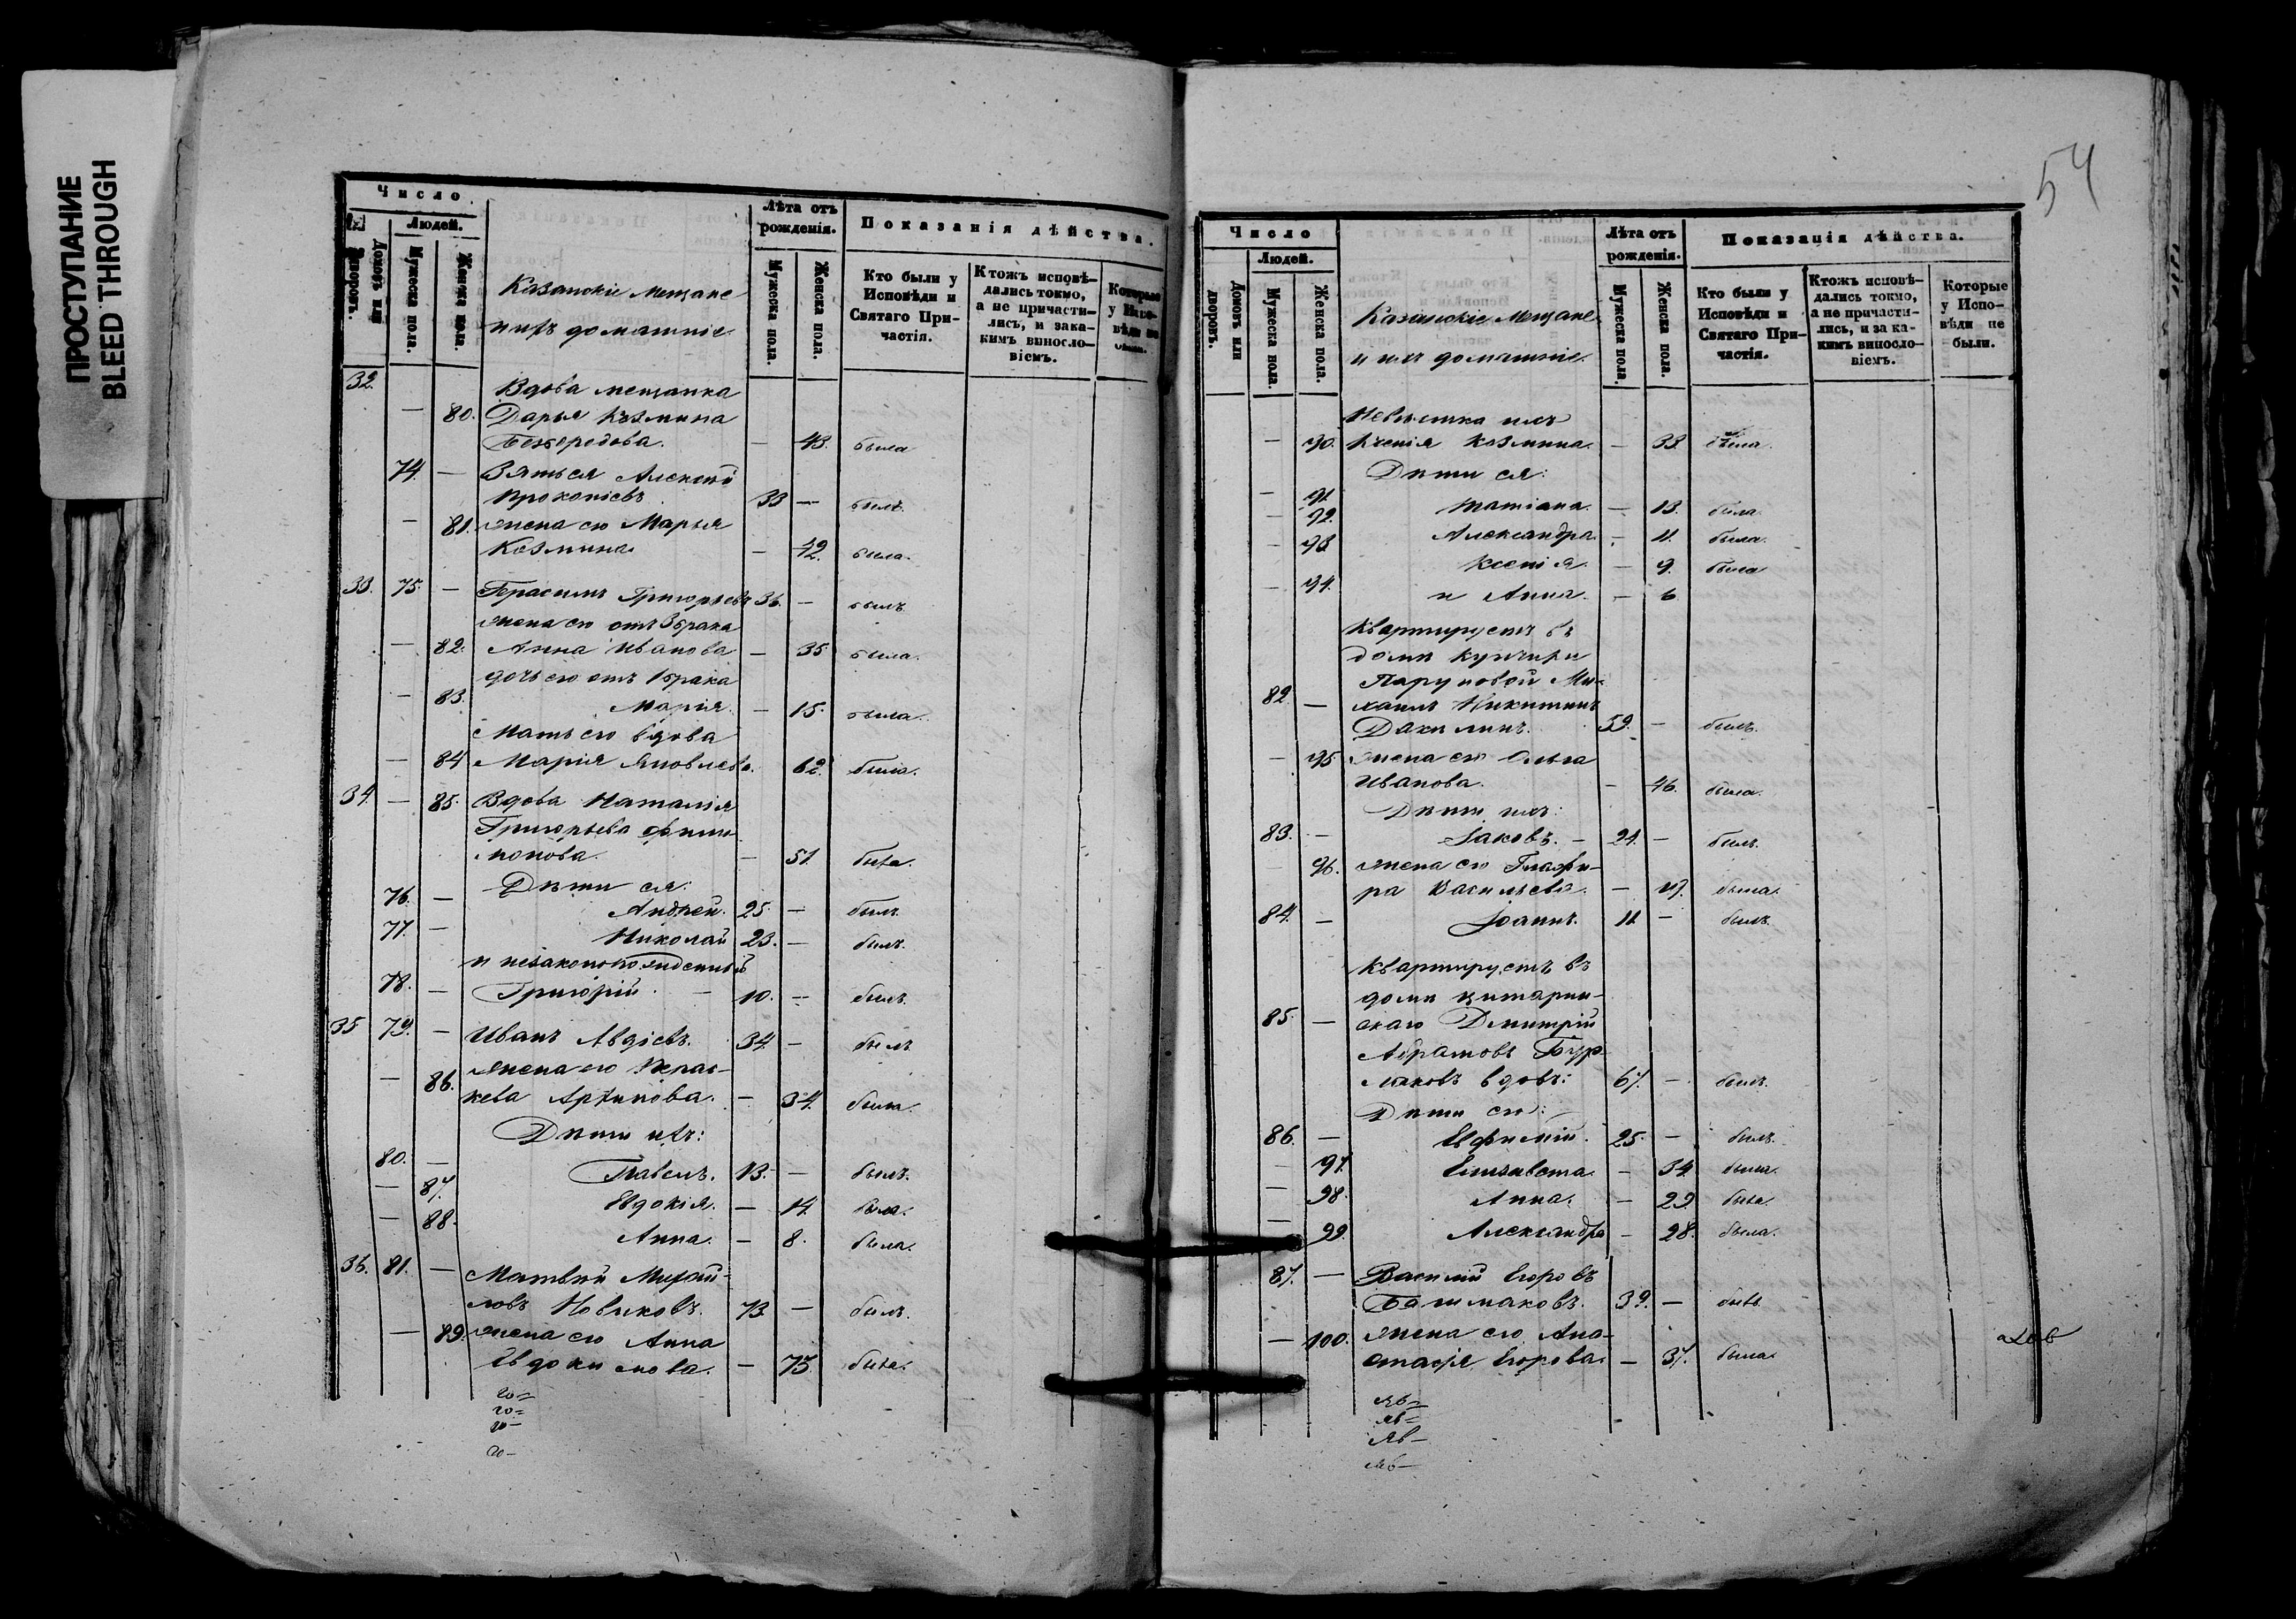 ПРОСТУПАНИЕ
BLEED THROUGH
Число
Домовъ или дворовъ.
Людей.
Мужеска пола.
Женска пола.
Казанскіе Мещане
и ихъ домашніе
Лѣта отъ рожденія.
Мужеска пола.
Женска пола.
Показанія дѣйства.
Кто были у Исповѣди и Святаго Причастія.
Ктожъ исповѣдались токмо, а не причастились, и за какимъ винословіемъ.
Которые у Исповѣди не были.
32. Вдова мещанка
— 80. Дарья Козмина
— 43. была
74. — Зять ея Алексѣй
Прокопіевъ 33 — былъ
— 81. жена его Марья
Козмина — 42. была.
33. 75. — Герасимъ Григорьевъ 36. — былъ
жена его отъ 2 брака
— 82. Анна Иванова — 35 была.
дочь его отъ 1 брака
— 83. Марія. — 15. была.
Мать его вдова
— 84 Марія Яковлева. 62. была.
34. — 85. Вдова Наталія
Григорьева Фили-
монова. — 51. была.
Дѣти ея:
76. — Андрей. 25. — былъ.
77. — Николай 23. — былъ.
и незаконнорожденный
78. — Григорій. — 10. — былъ.
35 79. — Иванъ Авдіевъ. 34. — былъ
— 86. жена его Парас-
кева Архипова. — 34. была.
Дѣти ихъ:
80. — Павелъ. 13. — былъ.
— 87. Евдокія. — 14. была.
— 88. Анна. — 8. была.
36. 81. — Матвѣй Михай-
ловъ Новиковъ. 73. — былъ.
— 89. жена его Анна
Евдокимова. — 75. была.
54
Число
Домовъ или дворовъ.
Людей.
Мужеска пола.
Женска пола.
Казанскіе Мещане
и ихъ домашніе.
Лѣта отъ рожденія.
Мужеска пола.
Женска пола.
Показанія дѣйства.
Кто были у Исповѣди и Святаго Причастія.
Ктожъ исповѣдались токмо, а не причастились, и за какимъ винословіемъ.
Которые у Исповѣди не были.
Невѣстка ихъ
— 90. Ксенія Козмина. — 33. была.
Дѣти ея:
— 91. Татіана. — 13. была.
— 92. Александра. — 11. была.
— 93. Ксенія. — 9. была
— 94. и Анна. — 6
Квартируетъ въ
домѣ
82. — Михаилъ Никитинъ
59. — былъ.
— 95 жена его Ольга
Иванова. — 46. была.
Дѣти ихъ:
83. — Іаковъ. — 21. — былъ.
— 96. жена его Глафи-
ра Васильева. — 19. была.
84. — Іоаннъ. 11 — былъ.
Квартируетъ въ
домѣ
85. — Дмитрій
Абрамовъ Бур-
лаковъ вдовъ: 67. — былъ.
Дѣти его:
86. — Евфимій. 25. — былъ.
— 97. Елизавета. — 34. была.
— 98. Анна. — 29. была.
— 99. Александра — 28. была.
87. — Василій Егоровъ
Башмаковъ. 39. — былъ.
— 100. жена его Ана-
стасія Егорова. — 37. была.